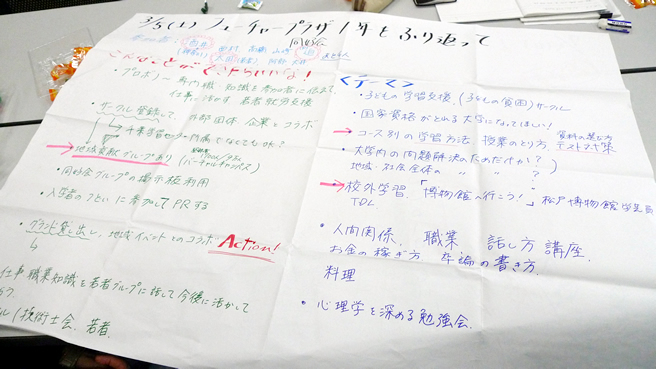 3/5(土) フューチャープラザ1年をふり返って
こんなことができたらいいな!
・プロボノ ー 専門職 知識を参加者に伝え、
仕事に活かす 若者就労支援
・サークル登録して、外部団体 企業とコラボ
千葉学習センター所属でなくても よい?
地域貢献グループあり
(バーチャルキャンパス)
・同好会グループの掲示板利用
・入学者のつどいに参加してPRする
・グランド貸し出し、地域イベントとのコラボ
Action!
仕事 職業知識を若者グループに話して今後に活かして
(技術士会、若者
<テーマ>
・子どもの学習支援、(子どもの貧困) サークル
・国家資格がとれる大学になってほしい!
→ コース別の学習方法 授業のとり方、資料の選び方 テスト
・大学内の問題解決のためだけか?
地域・社会全体の 〃 〃 ?
→・校外学習、「博物館へ行こう!」 松戸博物館 学芸員
TDL
・人間関係、 職業 話し方 講座
お金の稼ぎ方 卒論の書き方、
料理
・心理学を深める勉強会、